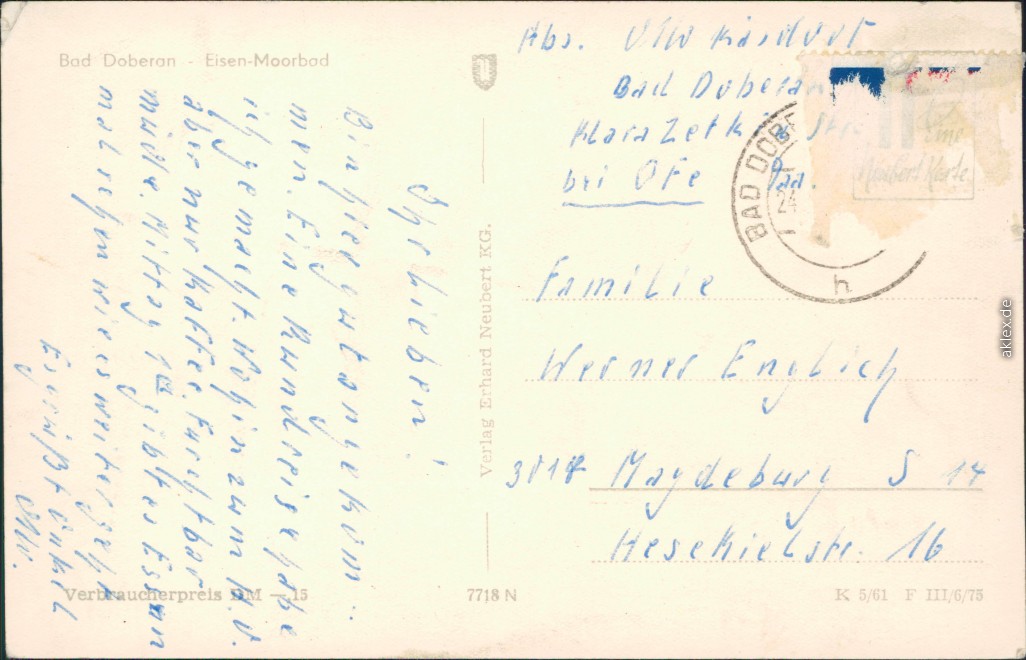 Bad Doberan - Eisen-Moorbad
Ihr Lieben!
Bin hier gut angekom-
men. Eine Rundreise habe
ich gemacht. Wohin zum K.
aber nur Kaffee. Furchtbar
müde. Mittag gibt es Essen
mal sehen wie es weiter geht
Es grüßt Onkel
Otto.
Verbraucherpreis DM —.15
7718 N
Verlag Erhard Neubert KG.
Abs. Otto
Bad Doberan
Klara Zetkin Str.
bei
BAD DOBE
24
h
Eine
Neubert Karte
Familie
Werner Englich
301 Magdeburg S 14
Hesekielstr. 16
K 5/61 F III/6/75
aklex.de